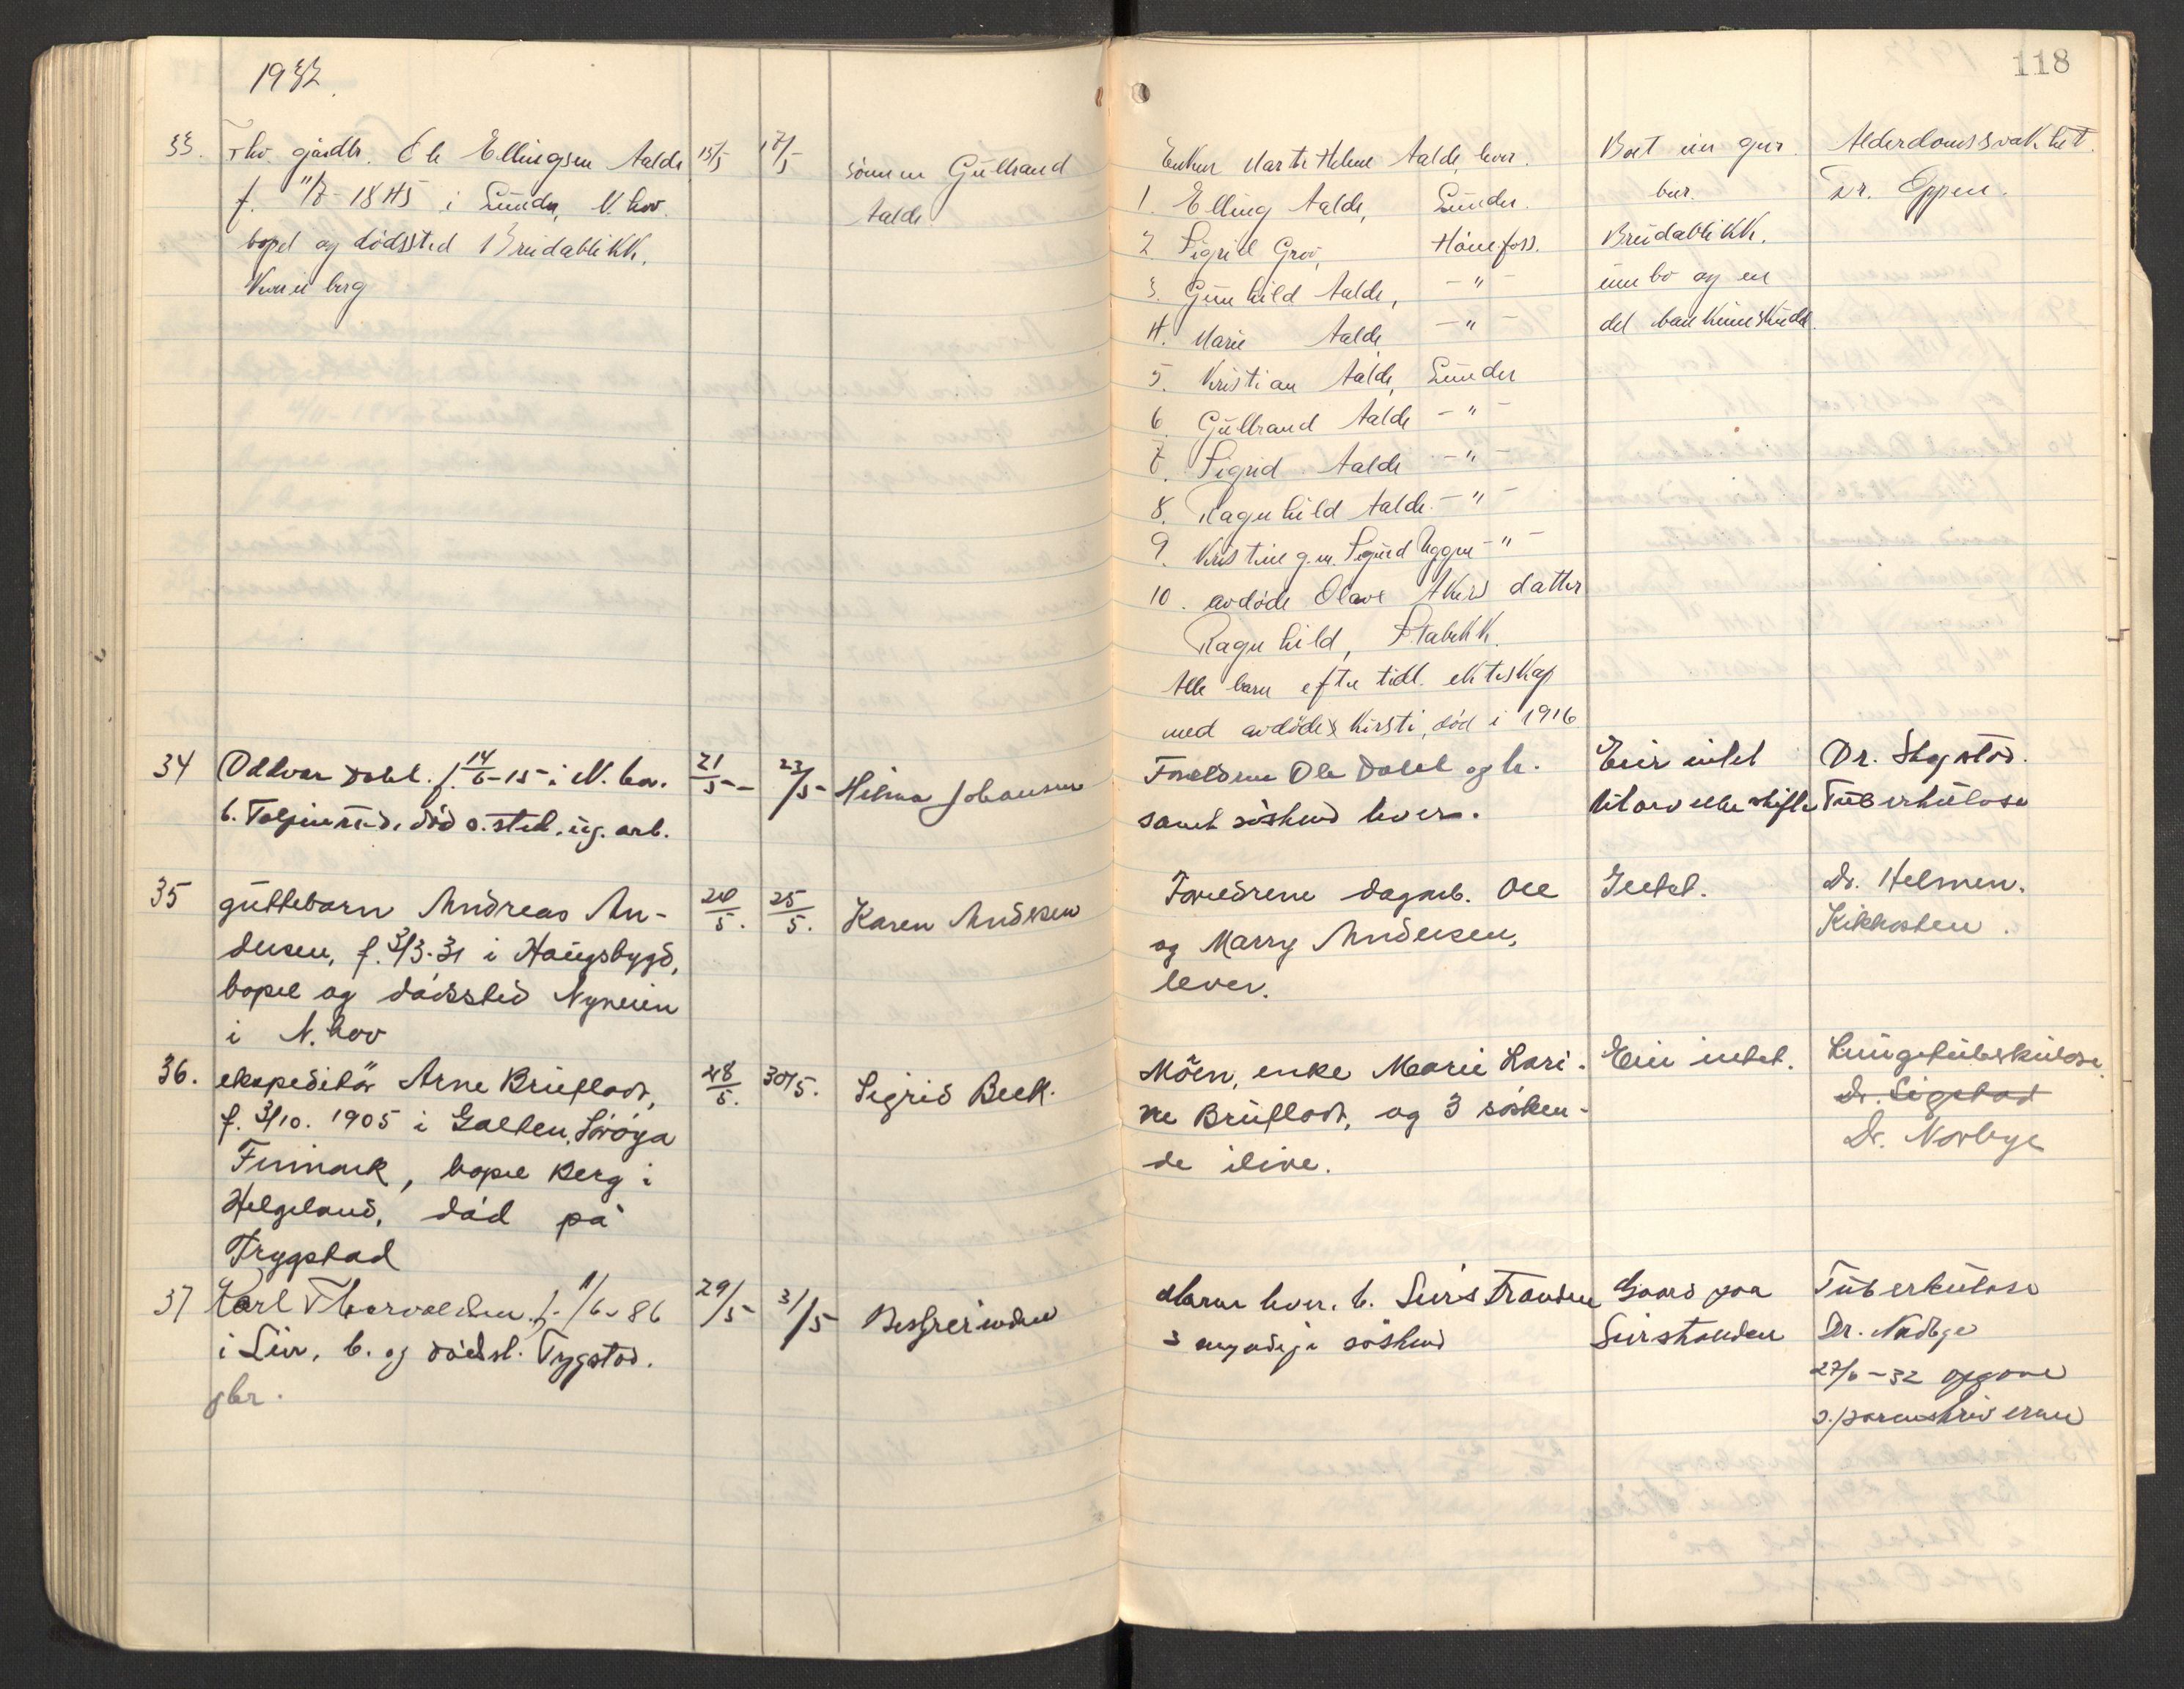 1932.
118
33.
Fhv. gårdbr. Ole Ellingsen Aalde
f. 11/7-1845 i Lunder, N. hov.
bopel og dødssted Breidablikk,
15/5
17/5
sønnen Gulbrand
Aalde
Enken Marte Helene Aalde, lever.
1. Elling Aalde, Lunder.
2. Sigrid Hønefoss.
3. Gunhild Aalde, - " -
4. Marie Aalde - " -
5. Kristian Aalde, Lunder
6. Gulbrand Aalde - " -
7. Sigrid Aalde - " -
8. Ragnhild Aalde - " -
9. Kristine g.m. Sigurd - " -
10. avdøde Olave datter
Ragnhild, Stabekk.
Alle barn efter tidl. ekteskap
med avdøde Kirsti, død i 1916
Boet
Breidablikk.
innbo og en
del
Alderdomssvakhet.
Dr. Oppen.
34
Oddvar Dahl. f. 14/6-15 i N. hov.
død s. sted. ug. arb.
21/5
23/5
Hilma Johansen
Foreldrene Ole Dahl og h.
samt søskend lever.
Eier intet
Dr. Sigstad.
Tuberkulose
35
guttebarn Andreas An-
dersen, f. 3/3-31 i Haugsbygd,
bopel og dødssted Nyveien
i N. hov
20/5.
25/5.
Karen Andersen
Foreldrene dagarb. Ole
og Marry Andersen,
lever.
Intet.
Dr. Helmen.
Kikhosten.
36.
ekspeditør Arne Bruflodt,
f. 3/10. 1905 i Galten, Sørøya
Finmark, bopel Berg i
Helgeland, død på
Trygstad
28/5.
30/5.
Sigrid Beck.
Moren, enke Marie Lari-
ne Bruflodt, og 3 søsken-
de ilive.
Eier intet.
Lungetuberkulose.
Dr. Sigstad
Dr. Norbye
37
Karl Thorvaldsen, f. 11/6-86
i Lier, b. og dødsst. Trygstad.
gbr.
29/5
31/5
Bestyrerinden
Moren lever, b. Lierstranden
3 myndige søskend
Gaard paa
Lierstranden
Tuberkulose
Dr. Norbye
27/6-32 opgave
s./sorenskriveren